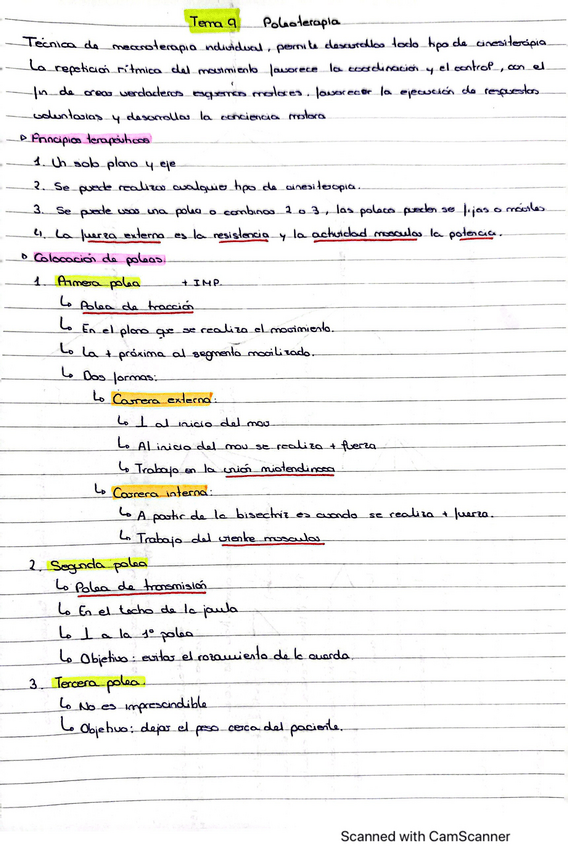 Tema 9 Poleoterapia
Técnica de mecanoterapia individual, permite desarrollar todo tipo de cinesiterapia
La repetición rítmica del movimiento favorece la coordinación y el control, con el
fin de crear verdaderos esquemas motores, favorecer la ejecución de respuestas
voluntarias y desarrollar la conciencia motora
▷ Principios terapéuticos
1. Un solo plano y eje
2. Se puede realizar cualquier tipo de cinesiterapia.
3. Se puede usar una polea o combinar 2 o 3, las poleas pueden ser fijas o móviles
4. La fuerza externa es la resistencia y la actividad muscular la potencia.
▷ Colocación de poleas
1. Primera polea + IMP.
↳ Polea de tracción
↳ En el plano que se realiza el movimiento.
↳ La + próxima al segmento movilizado.
↳ Dos formas:
↳ Carrera externa:
↳ ⊥ al inicio del mov
↳ Al inicio del mov se realiza + fuerza
↳ Trabajo en la unión miotendinosa
↳ Carrera interna:
↳ A partir de la bisectriz es cuando se realiza + fuerza.
↳ Trabajo del vientre muscular
2. Segunda polea
↳ Polea de transmisión
↳ En el techo de la jaula
↳ ⊥ a la 1º polea
↳ Objetivo: evitar el rozamiento de la cuerda.
3. Tercera polea.
↳ No es imprescindible
↳ Objetivo: dejar el peso cerca del paciente.
Scanned with CamScanner